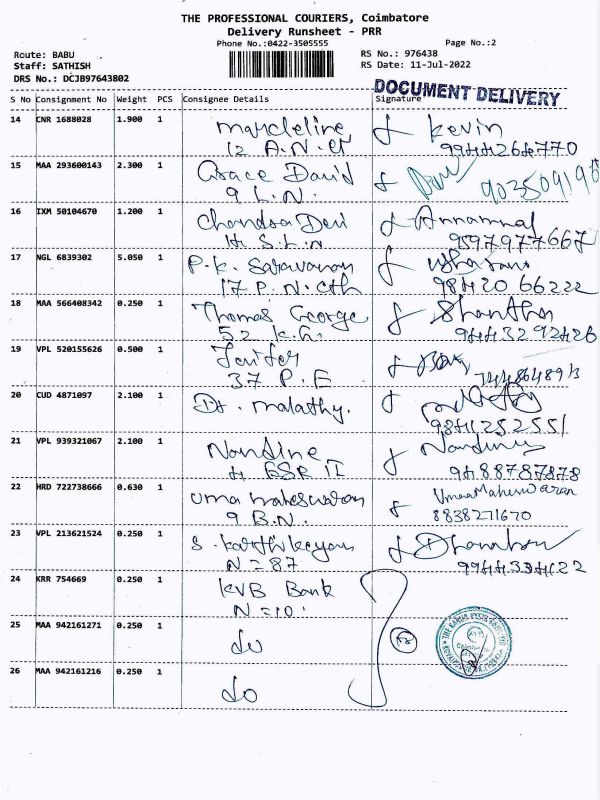 THE PROFESSIONAL COURIERS, Coimbatore
Delivery Runsheet - PRR
Phone No.:0422-3505555
Page No.:2
Route: BABU
RS No.: 976438
Staff: SATHISH
RS Date: 11-Jul-2022
DRS No.: DCJB97643802
DOCUMENT DELIVERY
S No Consignment No Weight PCS Consignee Details Signature
14 CNR 1688028 1.900 1
12 A.N.
Kevin
15 MAA 293600143 2.300 1 Grace David
9 L.N.
16 IXM 50104670 1.200 1 Chandra Devi Annammal
H S.L.N 9597977667
17 NGL 6839302 5.050 1 P.K. Saravanan
17 P.N. 98420 66222
18 MAA 566408342 0.250 1 Thomas George Shantha
52 K.G. 9443292426
19 VPL 520155626 0.500 1
37 P.E
20 CUD 4871097 2.100 1 Dr. malathy.
9841252551
21 VPL 939321067 2.100 1 Nandine
4 ESR II 9488787878
22 HRD 722738666 0.630 1 uma maheswaran
9 B.N. 8838271670
23 VPL 213621524 0.250 1 S. Karthikeyan
N=87 9944334122
24 KRR 754669 0.250 1 KVB Bank
N=10
25 MAA 942161271 0.250 1 do
26 MAA 942161216 0.250 1 do